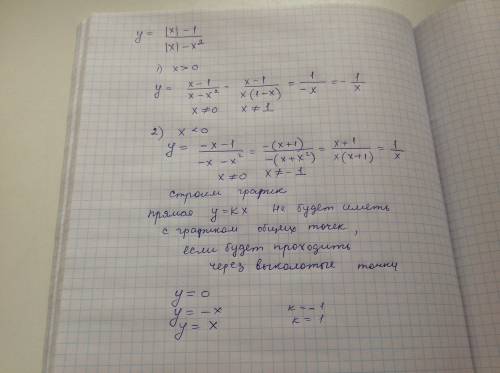 y = |x| - 1 / |x| - x²
1) x > 0
y = x - 1 / x - x² - x - 1 / x(1 - x) = 1 / -x = - 1 / x
x ≠ 0 x ≠ 1
2) x < 0
y = -x - 1 / -x - x² = -(x + 1) / -(x + x²) = x + 1 / x(x + 1) = 1 / x
x ≠ 0 x ≠ - 1
строим график
прямая y = kx не будет иметь
с графиком общих точек,
если будет проходить
через выколотые точку
y = 0
y = -x k = -1
y = x k = 1